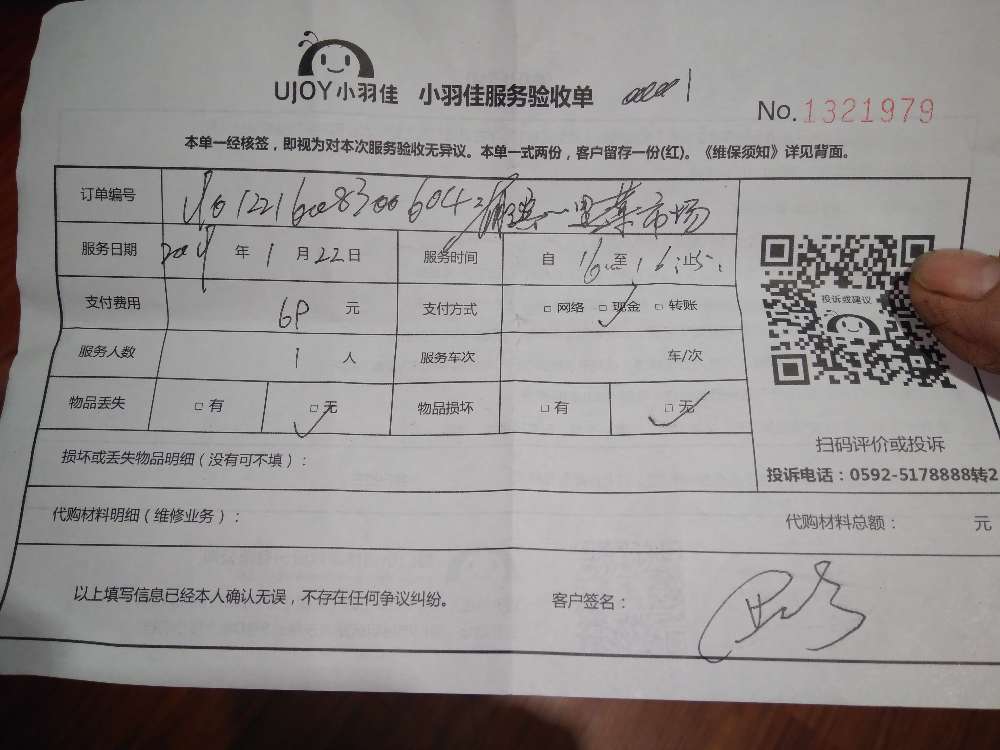 UJOY小羽佳 小羽佳服务验收单
No.1321979
本单一经核签，即视为对本次服务验收无异议。本单一式两份，客户留存一份(红)。《维保须知》详见背面。
订单编号 菜市场
服务日期 年1月22日 服务时间 自16至16:
支付费用 元 支付方式 □网络 □现金 □转账
服务人数 1人 服务车次 车/次
物品丢失 □有 □无 物品损坏 □有 □无
投诉或建议
扫码评价或投诉
投诉电话：0592-5178888转2
损坏或丢失物品明细（没有可不填）：
代购材料明细（维修业务）： 代购材料总额： 元
以上填写信息已经本人确认无误，不存在任何争议纠纷。 客户签名：